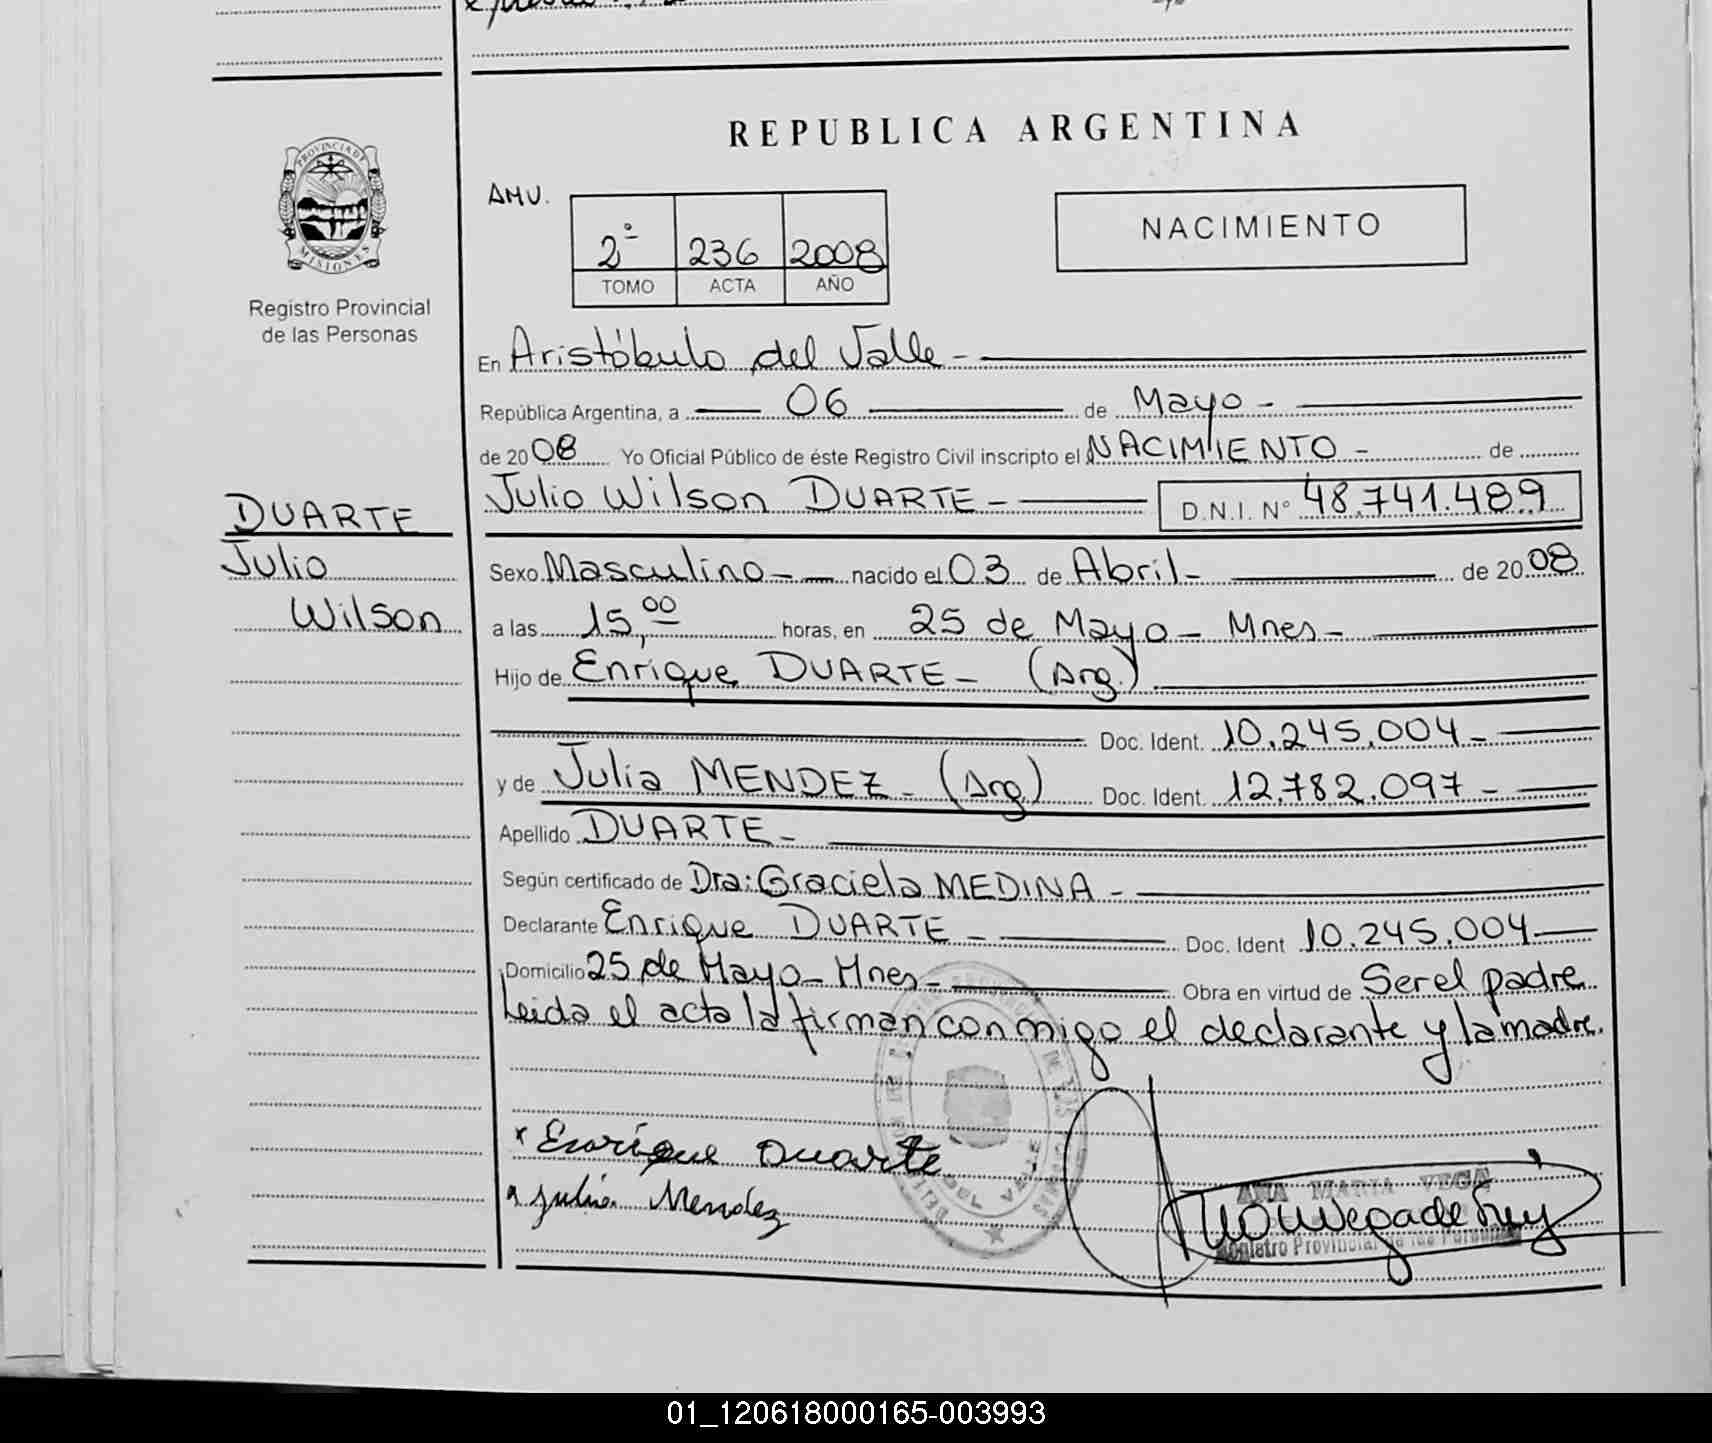 REPUBLICA ARGENTINA
PROVINCIA DE
MISIONES
Registro Provincial
de las Personas
AMU.
2º 236 2008
TOMO ACTA AÑO
NACIMIENTO
En Aristóbulo del Valle -
República Argentina, a 06 de Mayo -
de 2008 Yo Oficial Público de éste Registro Civil inscripto el NACIMIENTO - de
Julio Wilson DUARTE - D.N.I. Nº 48.741.489
DUARTE
Julio
Wilson
Sexo Masculino - nacido el 03 de Abril - de 2008
a las 15,00 horas, en 25 de Mayo - Mnes -
Hijo de Enrique DUARTE - (Arg.)
Doc. Ident. 10.245.004 -
y de Julia MENDEZ - (Arg) Doc. Ident. 12.782.097 -
Apellido DUARTE -
Según certificado de Dra: Graciela MEDINA -
Declarante Enrique DUARTE - Doc. Ident 10.245.004
Domicilio 25 de Mayo - Mnes - Obra en virtud de Ser el padre
Leida el acta la firman conmigo el declarante y la madre.
x Enrique Duarte
x Julia Mendez
DEL VALLE
ANA MARIA VEGA
Registro Provincial de las Personas
01_120618000165-003993